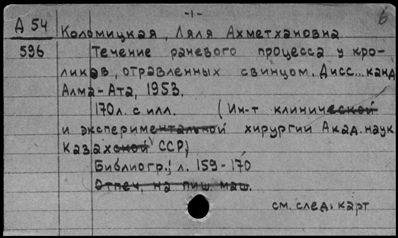 -1-
б
Д 54
596
Коломицкая, Ляля Ахметхановна
Течение раневого процесса у кро-
ликов, отравленных свинцом. Дисс... канд
Алма-Ата, 1953.
170 л. с илл. (Ин-т клинической
и экспериментальной хирургии Акад. наук
Казахской ССР)
Библиогр.: л. 159-170
Отпеч. на пиш. маш.
см. след. карт